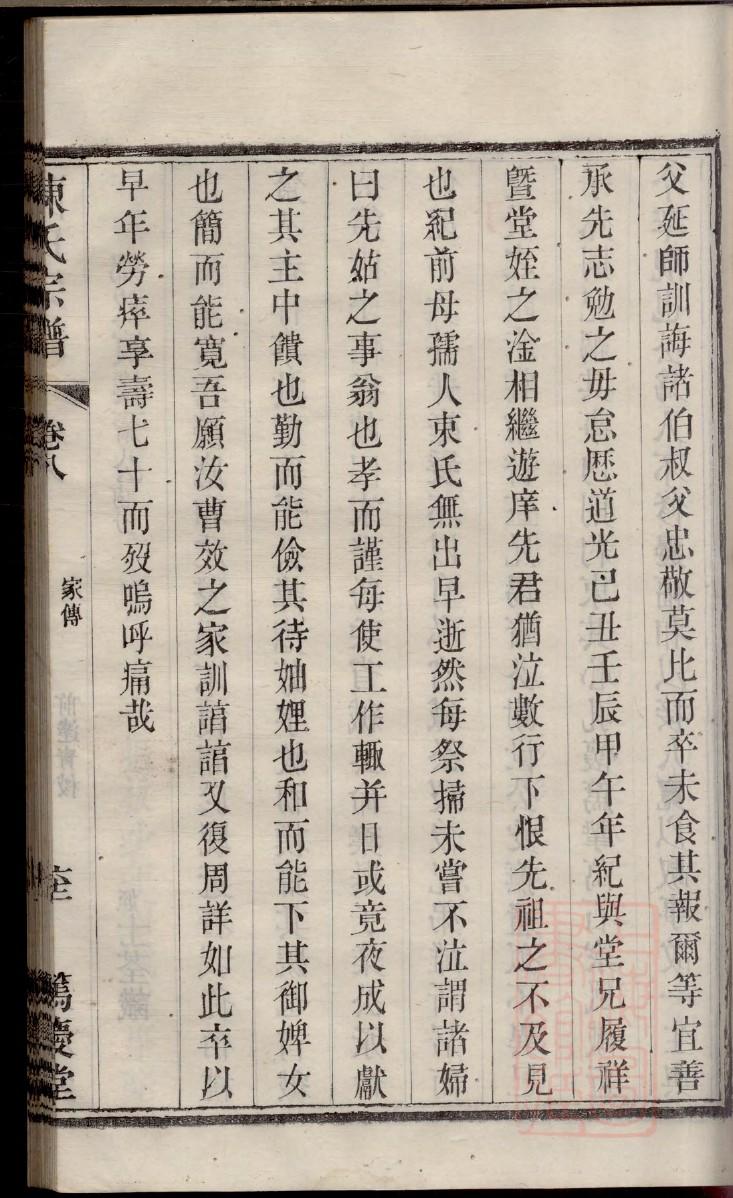 父延師訓誨諸伯叔父忠敬莫比而卒未食其報爾等宜善
承先志勉之毋怠歷道光己丑壬辰甲午年紀與堂兄履祥
暨堂姪之淦相繼遊庠先君猶泣數行下恨先祖之不及見
也紀前母孺人束氏無出早逝然每祭掃未嘗不泣謂諸婦
曰先姑之事翁也孝而謹每使工作輒并日或竟夜成以獻
之其主中饋也勤而能儉其待妯娌也和而能下其御婢女
也簡而能寬吾願汝曹效之家訓諳諳又復周詳如此卒以
早年勞瘁享壽七十而歿嗚呼痛哉
氏宗譜
卷八
家傳
篤慶堂